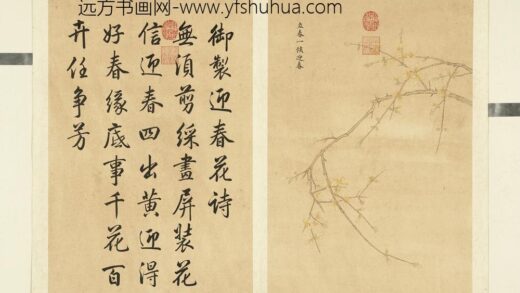 远方书画网-www.yfshuhua.com
立春一候迎春
御製迎春花诗
無須剪綵畫屏裝花
信迎春四出黄迎得
好春緣底事千花百
卉任争芳